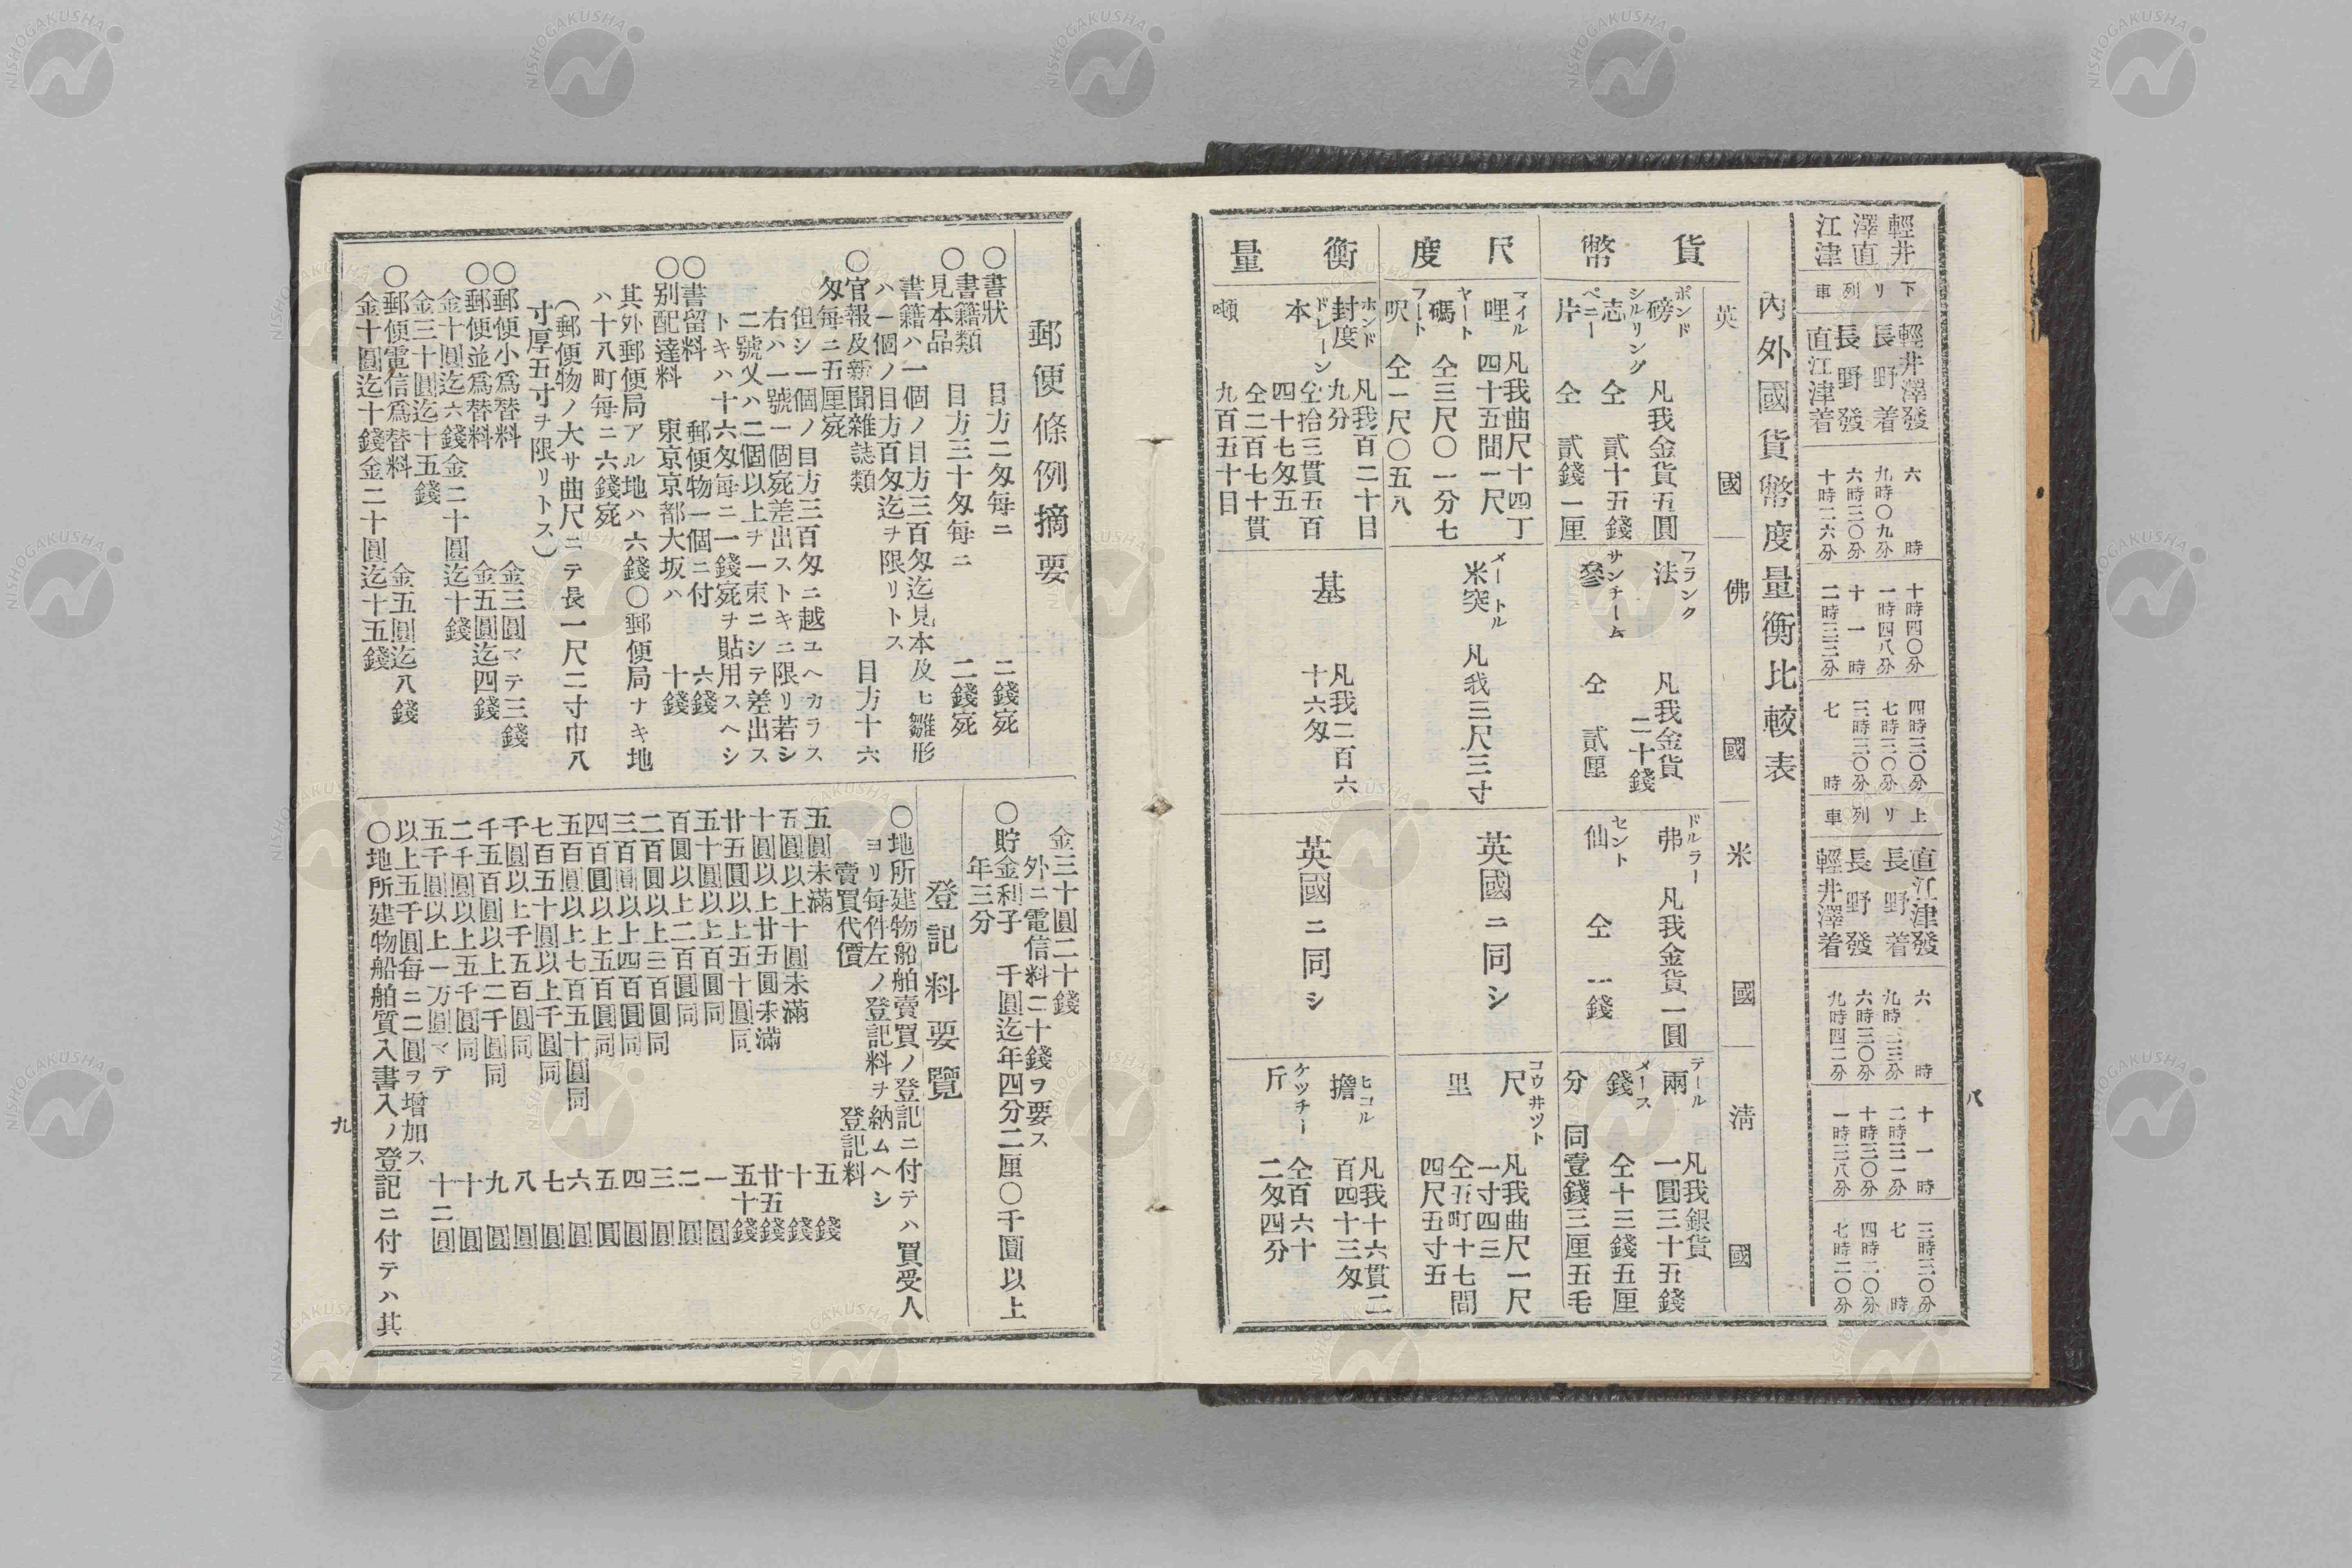 輕井
澤直
江津
下リ列車
輕井澤發
長野着
長野發
直江津着
六時
九時〇九分
六時三〇分
十時二六分
十時四〇分
一時四八分
十一時
二時三三分
四時三〇分
七時三〇分
三時三〇分
七時
上リ列車
直江津發
長野着
長野發
輕井澤着
六時
九時三三分
六時三〇分
九時四二分
十一時
二時三一分
十時三〇分
一時三八分
三時三〇分
七時
四時二〇分
七時二〇分
內外國貨幣度量衡比較表
英國
佛國
米國
淸國
貨幣
磅 ポンド 凡我金貨五圓
志 シルリング 仝 貳十五錢
片 ペニー 仝 貳錢一厘
法 フランク 凡我金貨二十錢
參 サンチーム 仝 貳厘
弗 ドルラー 凡我金貨一圓
仙 セント 仝 一錢
兩 テール 凡我銀貨一圓三十五錢
錢 メース 仝十三錢五厘
分 同壹錢三厘五毛
尺度
哩 マイル 凡我曲尺十四丁四十五間一尺
碼 ヤート 仝三尺〇一分七
呎 フート 仝一尺〇五八
米突 メートル 凡我三尺三寸
英國ニ同シ
尺 コウ井ツト 凡我曲尺一尺一寸四三
里 仝五町十七間四尺五寸五
衡量
封度 ホンド 凡我百二十目九分
本 ドレーン 仝拾三貫五百四十七匁五
噸 仝二百七十貫九百五十目
基 凡我二百六十六匁
英國ニ同シ
擔 ヒコル 凡我十六貫二百四十三匁
斤 ケツチー 仝百六十二匁四分
八
郵便條例摘要
〇書狀 目方二匁每ニ 二錢宛
〇書籍類
見本品 目方三十匁每ニ 二錢宛
書籍ハ一個ノ目方三百匁迄見本及ヒ雛形
ハ一個ノ目方百匁迄ヲ限リトス
〇官報及新聞雜誌類 目方十六
匁每ニ五厘宛
但シ一個ノ目方三百匁ニ越ユヘカラス
右ハ一號一個宛差出ストキニ限リ若シ
二號又ハ二個以上ヲ一束ニシテ差出ス
トキハ十六匁每ニ一錢宛ヲ貼用スヘシ
〇書留料 郵便物一個ニ付 六錢
〇別配達料 東京京都大坂ハ 十錢
其外郵便局アル地ハ六錢〇郵便局ナキ地
ハ十八町每ニ六錢宛
(郵便物ノ大サ曲尺ニテ長一尺二寸巾八
寸厚五寸ヲ限リトス)
〇郵便小爲替料 金三圓マテ三錢
〇郵便並爲替料 金五圓迄四錢
金十圓迄六錢金二十圓迄十錢
金三十圓迄十五錢
〇郵便電信爲替料 金五圓迄八錢
金十圓迄十錢金二十圓迄十五錢
金三十圓二十錢
外ニ電信料二十錢ヲ要ス
〇貯金利子 千圓迄年四分二厘〇千圓以上
年三分
登記料要覽
〇地所建物船舶賣買ノ登記ニ付テハ買受人
ヨリ每件左ノ登記料ヲ納ムヘシ
賣買代價 登記料
五圓未滿 五錢
五圓以上十圓未滿 十錢
十圓以上廿五圓未滿 廿五錢
廿五圓以上五十圓同 五十錢
五十圓以上百圓同 一圓
百圓以上二百圓同 二圓
二百圓以上三百圓同 三圓
三百圓以上四百圓同 四圓
四百圓以上五百圓同 五圓
五百圓以上七百五十圓同 六圓
七百五十圓以上千圓同 七圓
千圓以上千五百圓同 八圓
千五百圓以上二千圓同 九圓
二千圓以上五千圓同 十圓
五千圓以上一万圓マテ 十二圓
以上五千圓每ニ二圓ヲ增加ス
〇地所建物船舶質入書入ノ登記ニ付テハ其
九